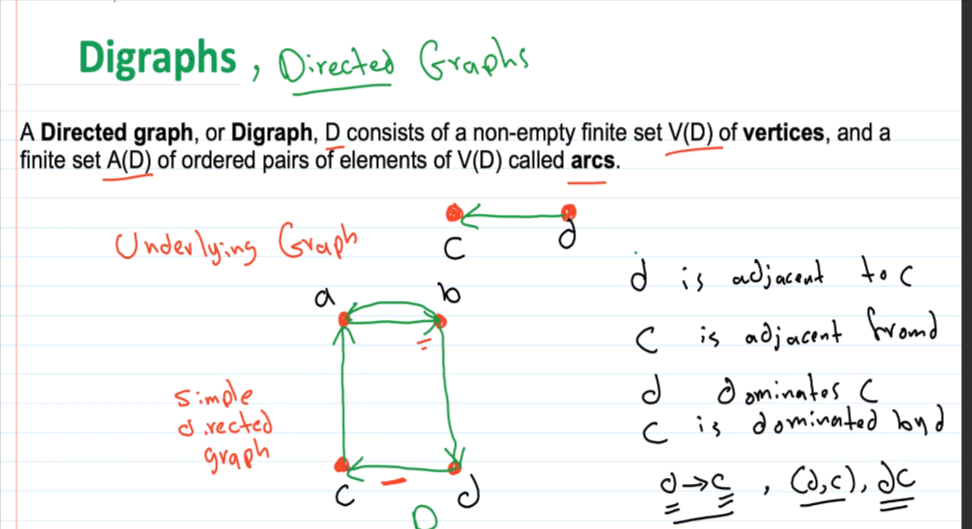 Digraphs, Directed Graphs
A Directed graph, or Digraph, D consists of a non-empty finite set V(D) of vertices, and a
finite set A(D) of ordered pairs of elements of V(D) called arcs.
Underlying Graph
c d
d is adjacent to c
a b
c is adjacent from d
simple
directed
graph
d dominates c
c is dominated by d
c d
d→c, (d,c), dc
D